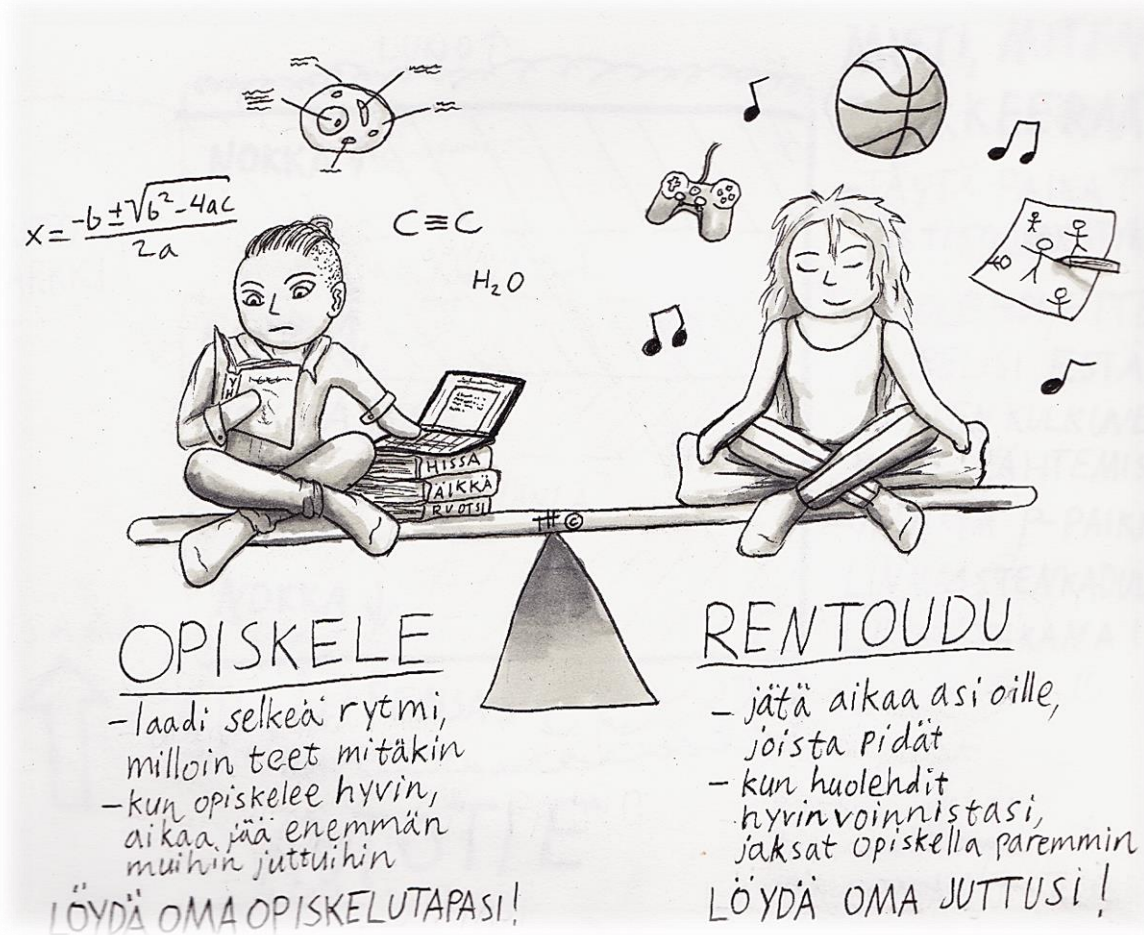 x = -b ± √b² - 4ac
2a
C≡C
H₂O
YH
HISSA
ÄIKKÄ
RUOTSI
©
OPISKELE
- laadi selkeä rytmi,
milloin teet mitäkin
- kun opiskelee hyvin,
aikaa jää enemmän
muihin juttuihin
LÖYDÄ OMA OPISKELUTAPASI!
RENTOUDU
- jätä aikaa asioille,
joista pidät
- kun huolehdit
hyvinvoinnistasi,
jaksat opiskella paremmin
LÖYDÄ OMA JUTTUSI!